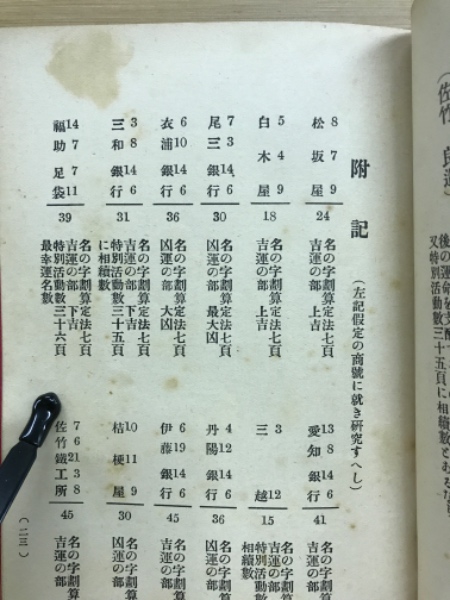 附記（左記假定の商號に就き研究すへし）
松8 坂7 屋9 24
名の字劃算定法七頁
吉運の部 上吉
白5 木4 屋9 18
名の字劃算定法七頁
吉運の部 上吉
尾7 三3 銀14 行6 30
名の字劃算定法七頁
凶運の部 最大凶
衣6 浦10 銀14 行6 36
名の字劃算定法七頁
凶運の部 大凶
三3 和8 銀14 行6 31
名の字劃算定法七頁
吉運の部 下吉
特別活動數三十五頁
に相續數
福14 助7 足7 袋11 39
名の字劃算定法七頁
吉運の部 下吉
特別活動數三十六頁
最幸運名數
愛13 知8 銀14 行6 41
名の字劃算
吉運の部
三3 越12 15
名の字劃算
吉運の部
特別活動數
相續數
丹4 陽12 銀14 行6 36
名の字劃算
凶運の部
伊6 藤19 銀14 行6 45
名の字劃算
吉運の部
桔10 梗11 屋9 30
名の字劃算
凶運の部
佐7 竹6 鐵21 工3 所8 45
名の字劃算
吉運の部
（二三）